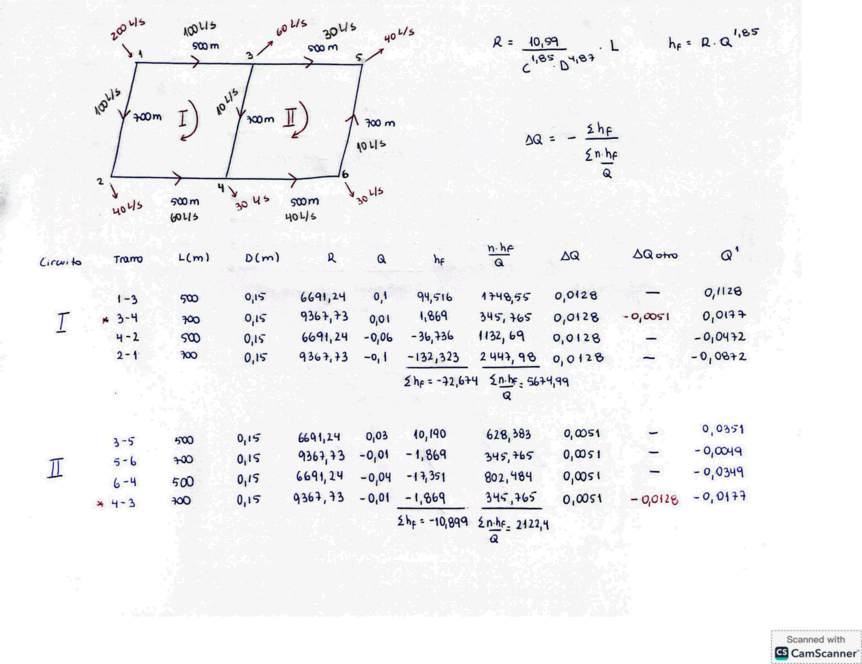 200 L/s
100 L/s
500 m
60 L/s
30 L/s
500 m
40 L/s
1
3
5
100 L/s
700 m
I
10 L/s
700 m
II
700 m
10 L/s
2
4
6
40 L/s
500 m
60 L/s
30 L/s
500 m
40 L/s
30 L/s
R = 10,59 / C^1,85 · D^4,87 · L
hf = R · Q^1,85
ΔQ = - Σhf / Σ n·hf/Q
Circuito Tramo L(m) D(m) R Q hf n·hf/Q ΔQ ΔQ otro Q'
I
1-3 500 0,15 6691,24 0,1 94,516 1748,55 0,0128 — 0,1128
* 3-4 700 0,15 9367,73 0,01 1,869 345,765 0,0128 -0,0051 0,0177
4-2 500 0,15 6691,24 -0,06 -36,736 1132,69 0,0128 — -0,0472
2-1 700 0,15 9367,73 -0,1 -132,323 2447,98 0,0128 — -0,0872
Σhf = -72,674 Σ n·hf/Q = 5674,99
II
3-5 500 0,15 6691,24 0,03 10,190 628,383 0,0051 — 0,0351
5-6 700 0,15 9367,73 -0,01 -1,869 345,765 0,0051 — -0,0049
6-4 500 0,15 6691,24 -0,04 -17,351 802,484 0,0051 — -0,0349
* 4-3 700 0,15 9367,73 -0,01 -1,869 345,765 0,0051 -0,0128 -0,0177
Σhf = -10,899 Σ n·hf/Q = 2122,4
Scanned with
CS CamScanner